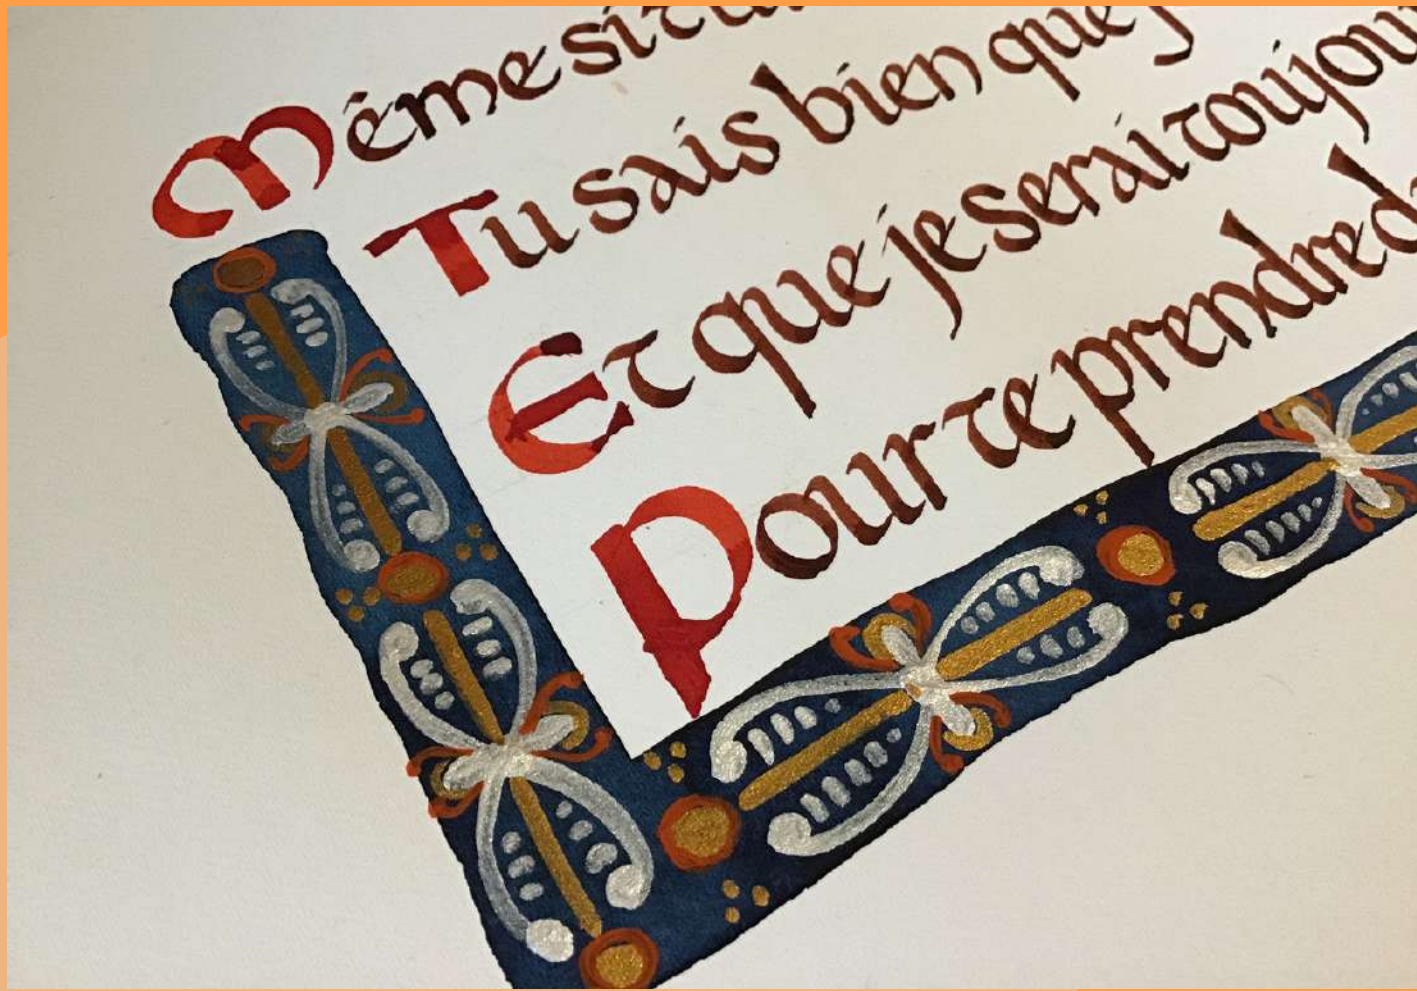 Même si
Tu sais bien que j
Et que je serai toujou
Pour te prendre d